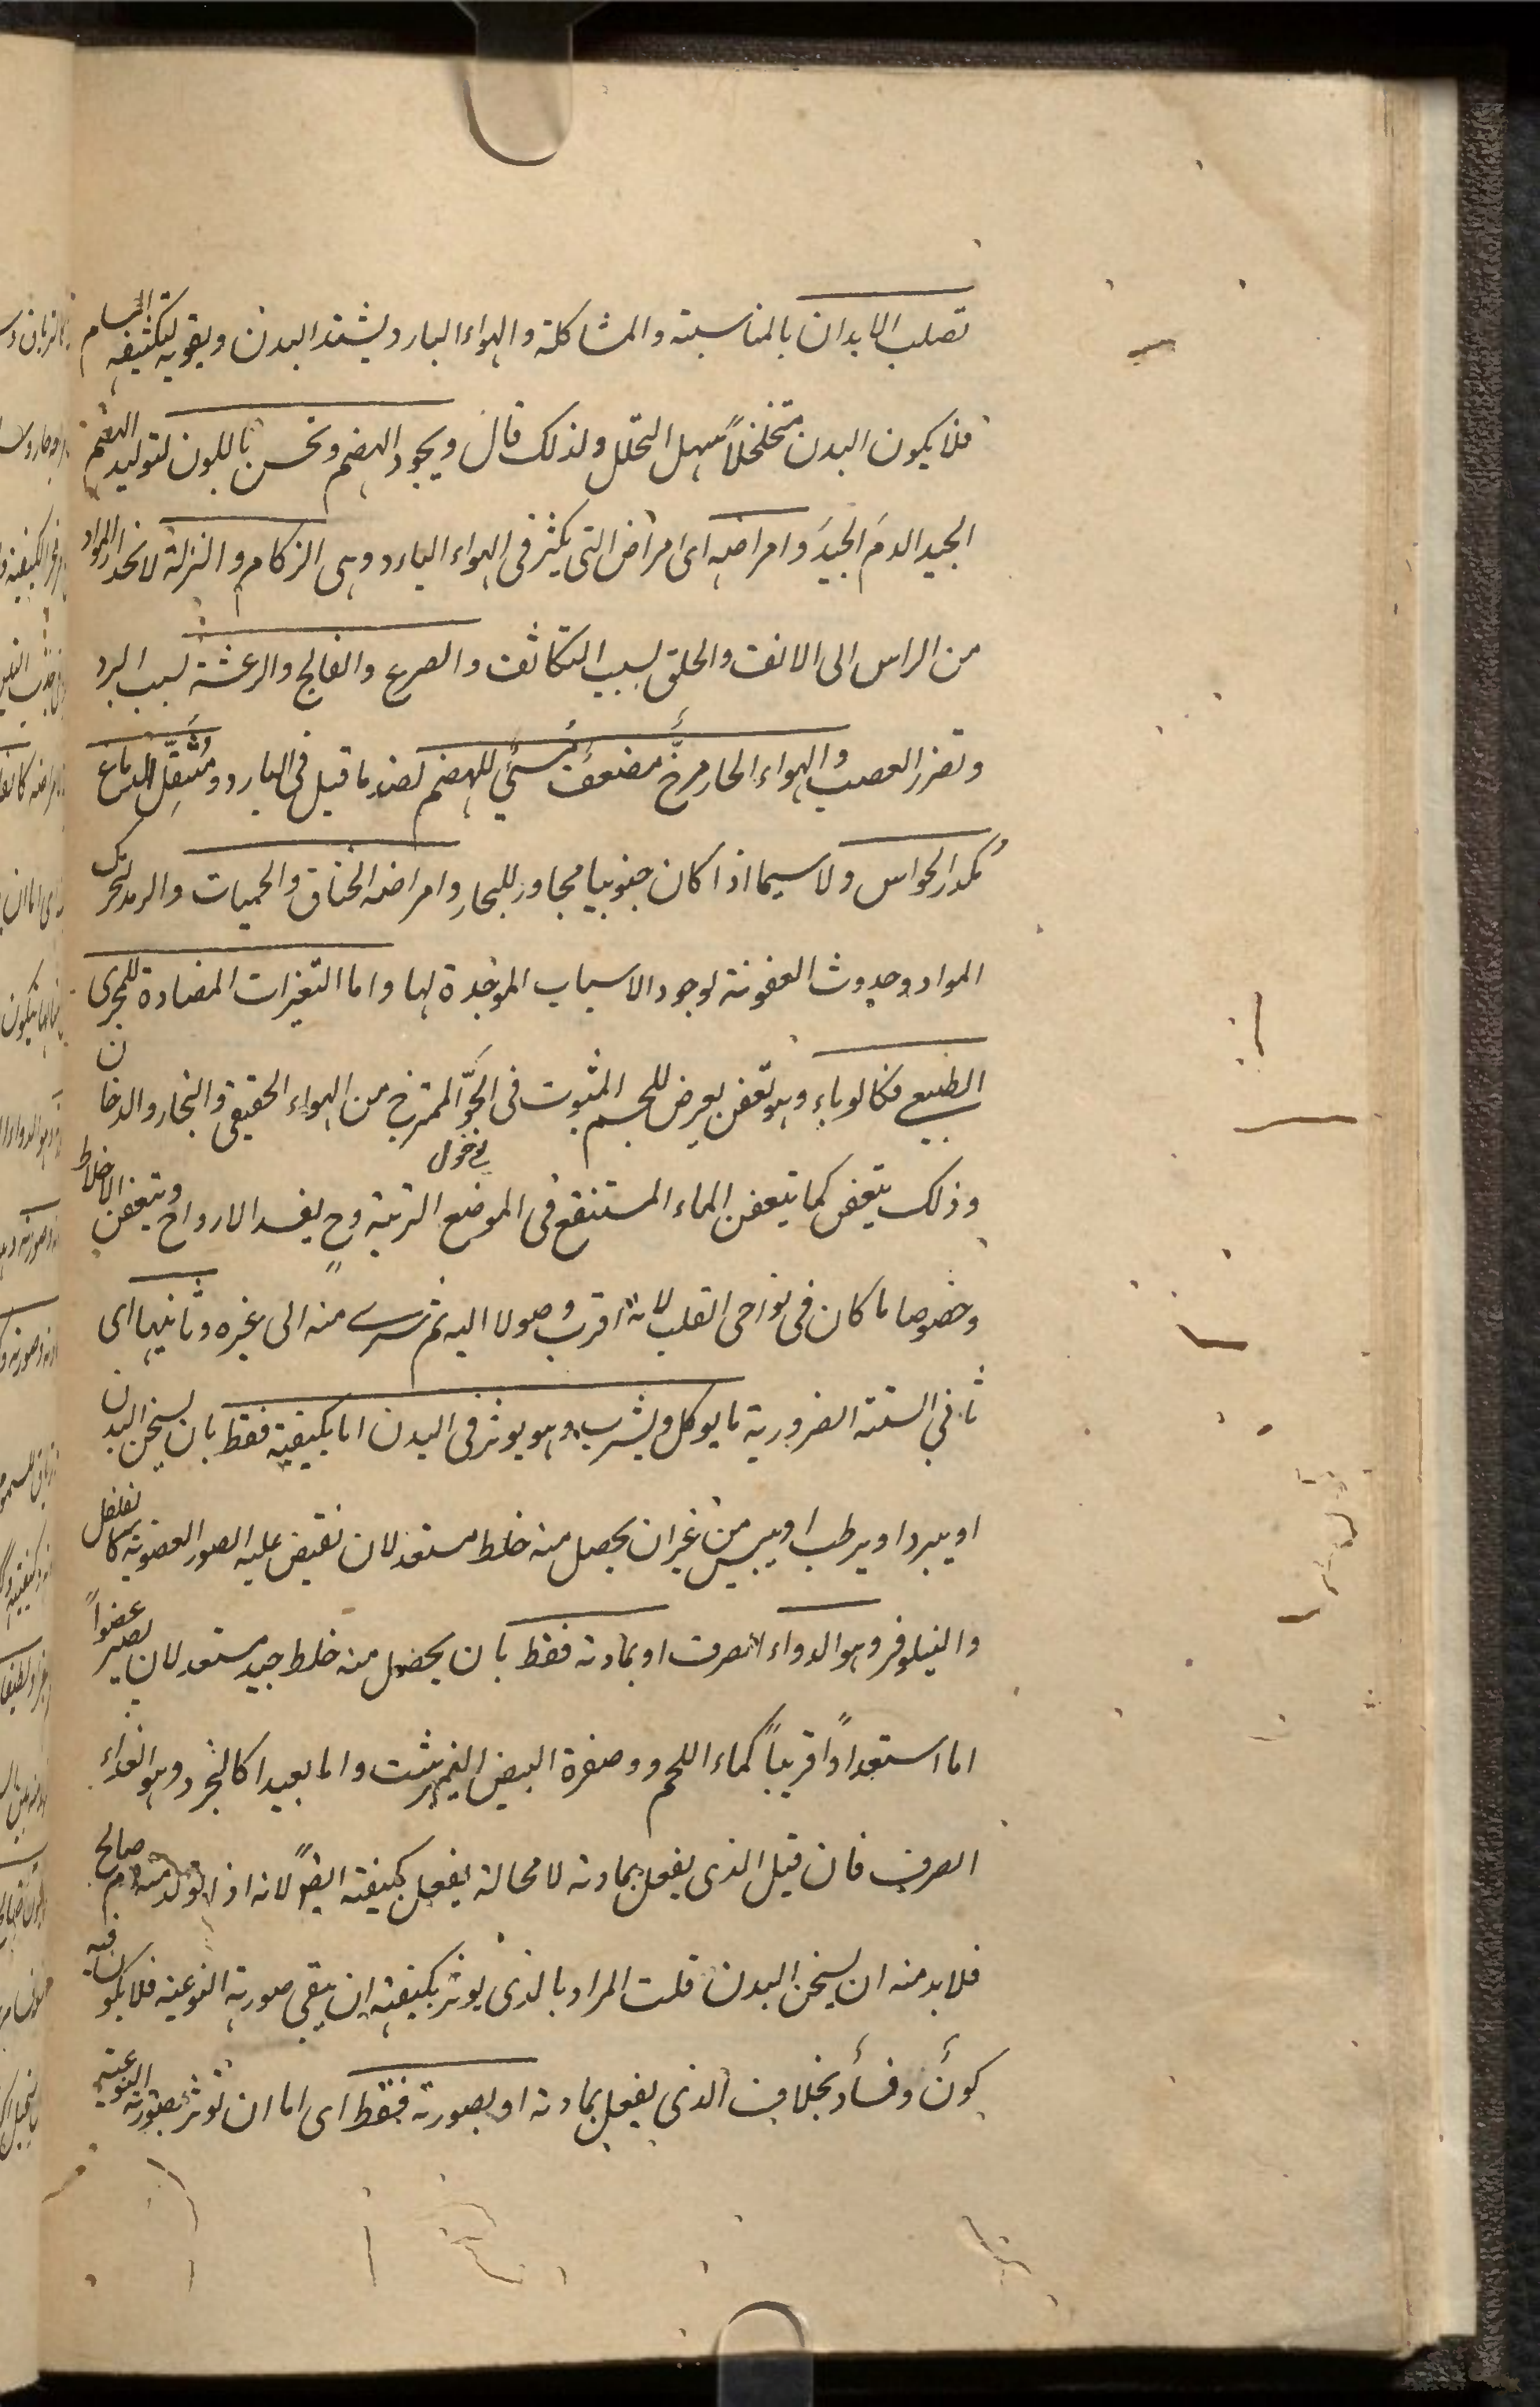 تصلب الابدان بالمناسبة والمشاكلة والهواء البارد يشتد البدن ويقويه لتكثيفه المسام
فلا يكون البدن متخلخلاً سهل التحلل ولذلك قال ويجود الهضم وتحسن اللون لتوليد الهضم
الجيد الدمَ الجيدَ وامراضه اى امراض التى يكثر فى الهواء البارد وهى الزكام والنزلة لانحدار المواد
من الراس الى الانف والحلق لسبب التكاثف والصرع والفالج والرعشة لسبب البرد
وتضرر العصب والهواء الحار مرخٍّ مضعف مُسيئ للهضم لضد ما قيل فى البارد ومُثقِّل الدماغ
مُكدر الحواس ولا سيما اذا كان جنوبيا مجاور للبحار وامراضه الخناق والحميات والرمد لتحرك
المواد وحدوث العفونة لوجود الاسباب الموجدة لها واما التغيرات المضادة للمجرى
الطبيعى فكالوباء وهو تعفن يعرض للجسم المثبوت فى الجوّ الممتزج من الهواء الحقيقى والبخار والدخان
وذلك يتعفن كما يتعفن الماء المستنقع فى الموضع التربة وح يفسد الارواح ويتعفن الاخلاط
وخصوصا ما كان فى نواحى القلب لانه اقرب وصولا اليه ثم يسرى منه الى غيره وثانيها اى
ثاني الستة الضرورية ما يوكل ويشرب وهو يوثر فى البدن اما بكيفية فقط بان يسخن البدن
او يبرد او يرطب او ييبس من غير ان يحصل منه خلط مستعد لان تفيض عليه الصور العضوية كالفلفل
والنيلوفر وهو الدواء الصرف او بمادته فقط بان يحصل منه خلط جيد مستعد لان يصير عضواً
اما استعداداً قريباً كماء اللحم وصفرة البيض النيمبرشت واما بعيدا كالخبز وهو الغداء
الصرف فان قيل الذى يفعل بمادته لا محالة يفعل بكيفيته ايضاً لانه اذا تولد منه دم صالح
فلا بد منه ان يسخن البدن قلت المراد بالذى يوثر بكيفيته ان يبقى صورته النوعيه فلا يكون فيه
كون وفساد بخلاف الذى يفعل بمادته او بصورته فقط اى اما ان توثر بصورته النوعية